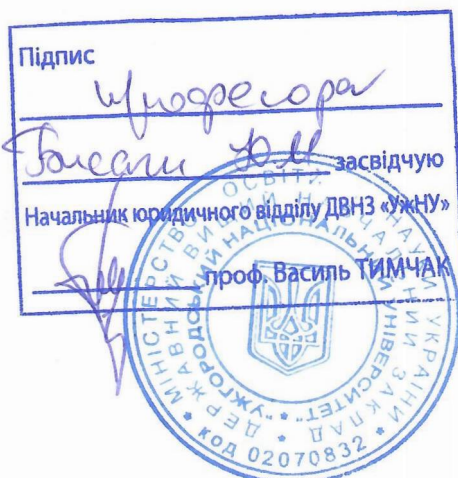 Підпис
професора
Бисаги Ю М засвідчую
Начальник юридичного відділу ДВНЗ «УжНУ»
проф. Василь ТИМЧАК
МІНІСТЕРСТВО ОСВІТИ І НАУКИ УКРАЇНИ
* код 02070832 *
ДЕРЖАВНИЙ ВИЩИЙ НАВЧАЛЬНИЙ ЗАКЛАД
"УЖГОРОДСЬКИЙ НАЦІОНАЛЬНИЙ УНІВЕРСИТЕТ"